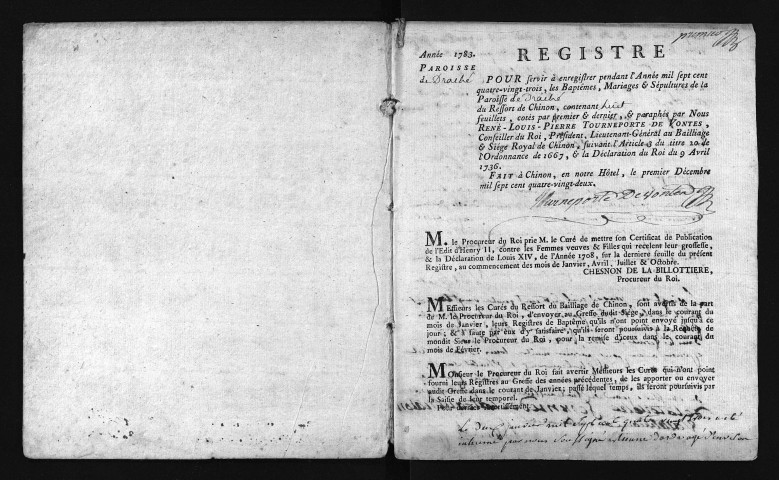 premier
Année 1783.
PAROISSE
de Draché
REGISTRE
POUR servir à enregistrer pendant l'Année mil sept cent
quatre-vingt-trois, les Baptêmes, Mariages & Sépultures de la
Paroisse de Draché
du Ressort de Chinon, contenant huit
feuillets, cotés par premier & dernier, & paraphés par Nous
RENÉ-LOUIS-PIERRE TOURNEPORTE DE VONTES,
Conseiller du Roi, Président, Lieutenant-Général au Bailliage
& Siége Royal de Chinon, suivant l'Article 3 du titre 20 de
l'Ordonnance de 1667, & la Déclaration du Roi du 9 Avril
1736.
FAIT à Chinon, en notre Hôtel, le premier Décembre
mil sept cent quatre-vingt-deux.
Tourneporte De Vontes
M. le Procureur du Roi prie M. le Curé de mettre son Certificat de Publication
de l'Edit d'Henry II, contre les Femmes veuves & Filles qui recelent leur grossesse,
& la Déclaration de Louis XIV, de l'Année 1708, sur la derniere feuille du présent
Registre, au commencement des mois de Janvier, Avril, Juillet & Octobre.
CHESNON DE LA BILLOTTIERE,
Procureur du Roi.
Messieurs les Curés du Ressort du Bailliage de Chinon, sont avertis de la part
de M. le Procureur du Roi, d'envoyer au Greffe dudit Siége, dans le courant du
mois de Janvier, leurs Registres de Baptême qu'ils n'ont point envoyé jusqu'à ce
jour; & à faute par eux d'y satisfaire, qu'ils seront poursuivis à la Requête de
mondit Sieur le Procureur du Roi, pour la remise d'iceux dans le courant du
mois de Février.
Monsieur le Procureur du Roi fait avertir Messieurs les Curés qui n'ont point
fourni leurs Registres au Greffe des années précédentes, de les apporter ou envoyer
audit Greffe dans le courant de Janvier; passé lequel temps, ils seront poursuivis par
la Saisie de leur temporel.
Le deux janvier mil sept cent quatre
inhumé par nous soussigné